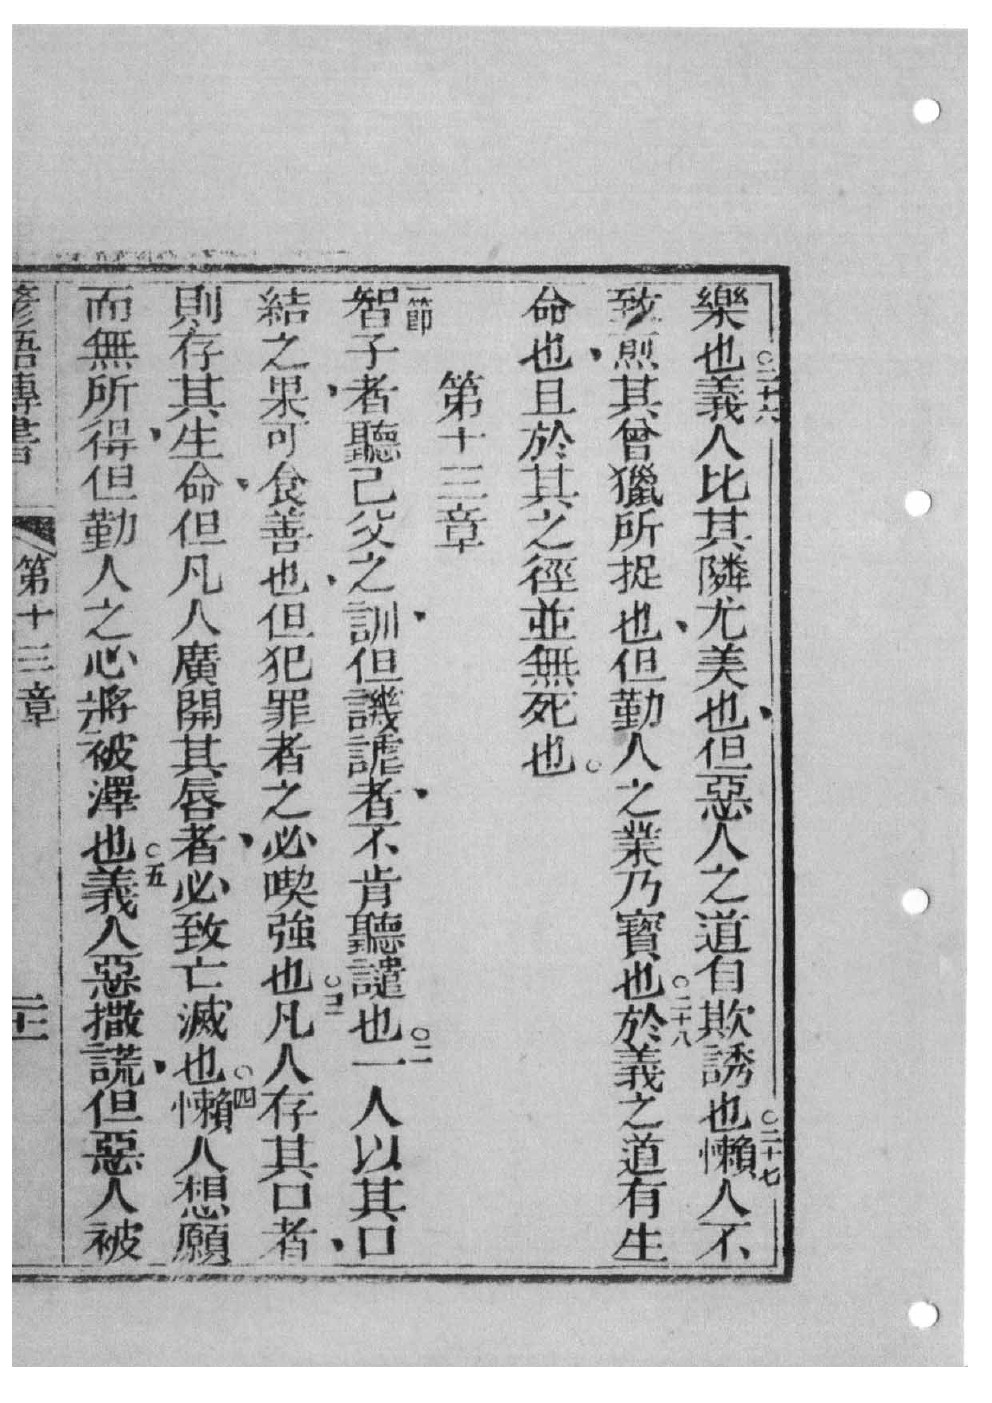 樂也○二十六義人比其隣尤美也但惡人之道自欺誘也○二十七懶人不
致煎其曾獵所捉也但勤人之業乃寶也○二十八於義之道有生
命也且於其之徑並無死也○
第十三章
一節智子者聽己父之訓但譏謔者不肯聽譴也○二一人以其口
結之果可食善也但犯罪者之必喫強也○三凡人存其口者
則存其生命但凡人廣開其唇者必致亡滅也○四懶人想願
而無所得但勤人之心將被澤也○五義人惡撒謊但惡人被
箴語傳書 第十三章 二十一